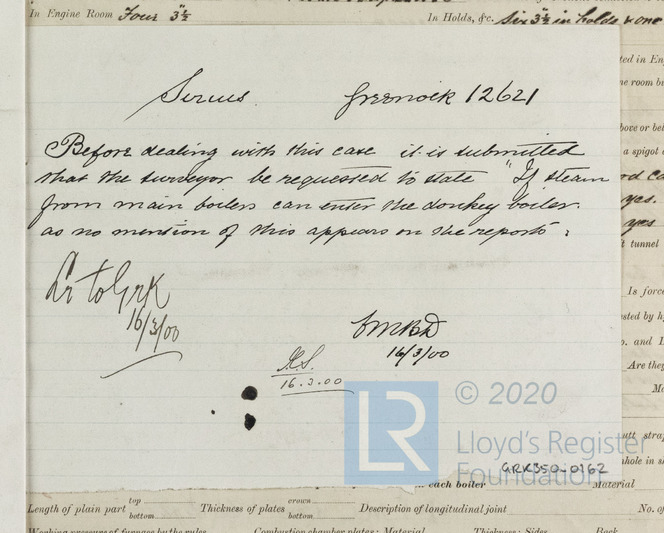 In Engine Room Four 3½" In Holds, &c. Six 3½" in holds & one
ted in En
ne room b
Sirius Greenock 12621
bove or be
Before dealing with this case it is submitted
a spigot
that the surveyor be requested to state "If steam
from main boilers can enter the donkey boiler.
yes.
as no mention of this appears on the reports.
yes
t tunnel
Lr to Grk
16/3/00
Is forc
sted by h
16/3/00
o. and
16.3.00
Are they
LR
© 2020
Lloyd's Register
Foundation
GRK350-0162
utt stra
hole in s
each boiler Material
Length of plain part top bottom Thickness of plates crown bottom Description of longitudinal joint No. of
Working pressure of furnace by the rules Combustion chamber plates: Material Thickness: Sides Back